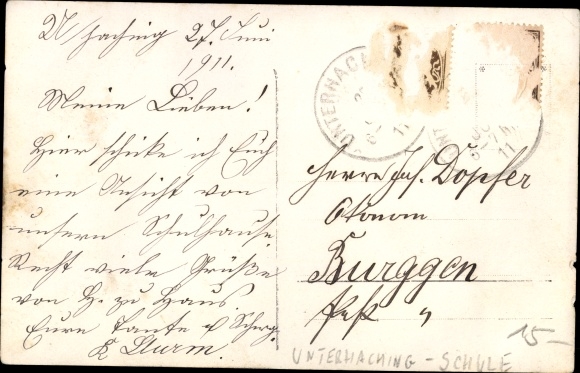 U haching 27. Juni
1911.
Meine Lieben!
Hier schicke ich Euch
eine Ansicht von
unserm Schulhause
Recht viele Grüße
von H. zu Haus.
Eure Tante
K Sturm.
UNTERHACH
11
11
Herrn Jos. Dopfer
Ökonom
Burggen
Post "
15-
UNTERHACHING - SCHULE